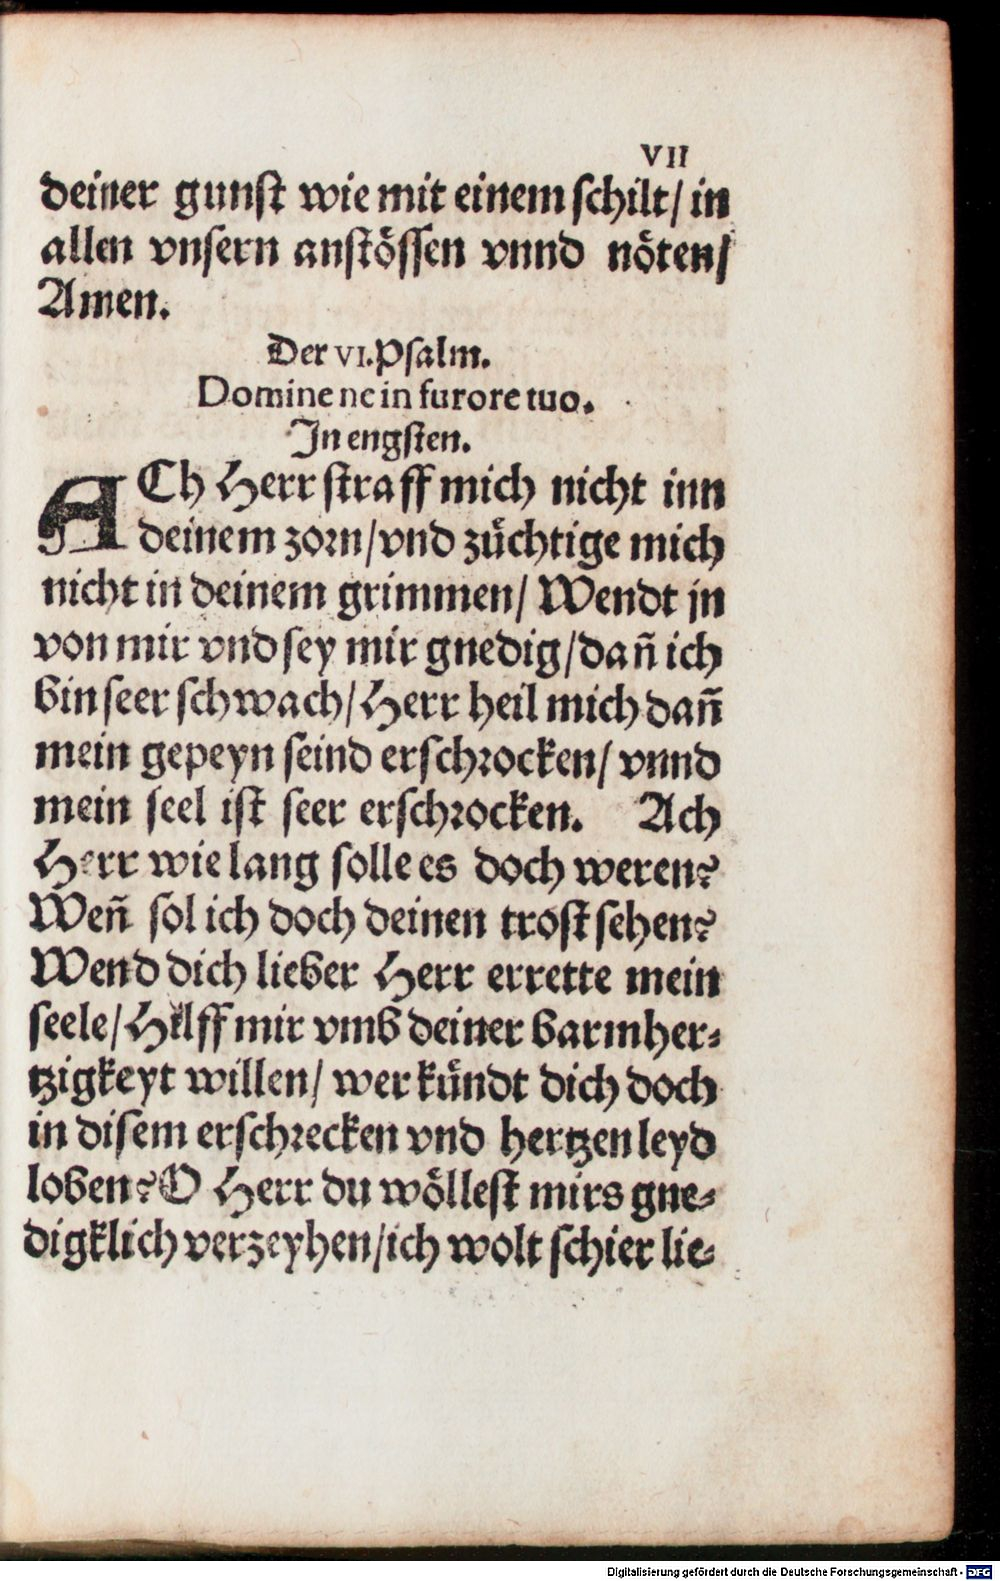 VII
deiner gunst wie mit einem schilt/ in
allen vnsern anstössen vnnd nöten/
Amen.
Der VI. Psalm.
Domine ne in furore tuo.
In engsten.
ACh Herr straff mich nicht inn
deinem zorn/ vnd züchtige mich
nicht in deinem grimmen/ Wendt jn
von mir vnd sey mir gnedig/ dañ ich
bin seer schwach/ Herr heil mich dañ
mein gepeyn seind erschrocken/ vnnd
mein seel ist seer erschrocken. Ach
Herr wie lang solle es doch weren?
Weñ sol ich doch deinen trost sehen?
Wend dich lieber Herr errette mein
seele/ Hilff mir vmb deiner barmher-
tzigkeyt willen/ wer kündt dich doch
in disem erschrecken vnd hertzen leyd
loben? O Herr du wöllest mirs gne-
digklich verzeyhen/ ich wolt schier lie-
Digitalisierung gefördert durch die Deutsche Forschungsgemeinschaft - DFG